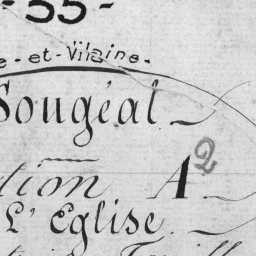 - 55 -
e-et-Vilaine.
Sougéal
tion A 2
L'Eglise.